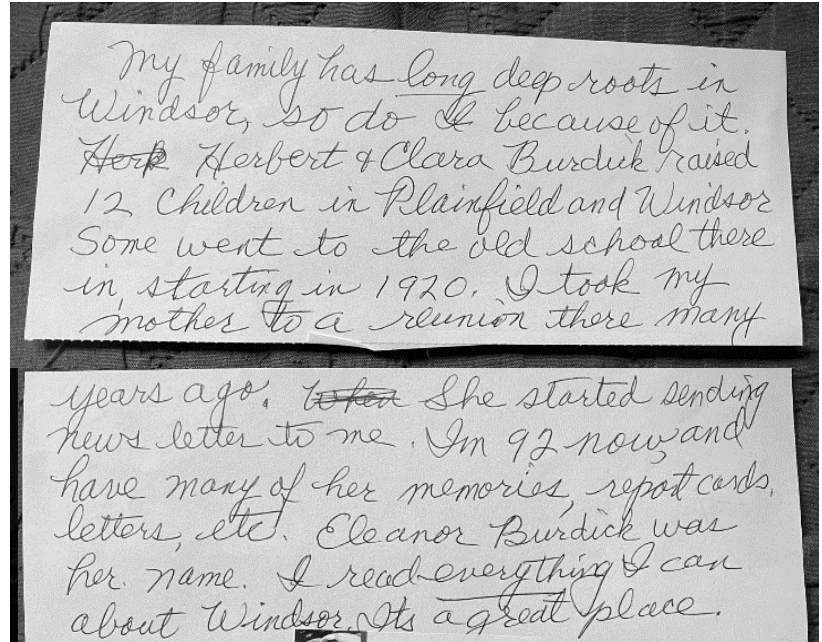 My family has long deep roots in
Windsor, so do I because of it.
Herb Herbert & Clara Burdick raised
12 Children in Plainfield and Windsor
Some went to the old school there
in, starting in 1920. I took my
mother to a reunion there many
years ago. When She started sending
news letter to me. Im 92 now, and
have many of her memories, report cards,
letters, etc. Eleanor Burdick was
her name. I read everything I can
about Windsor. Its a great place.